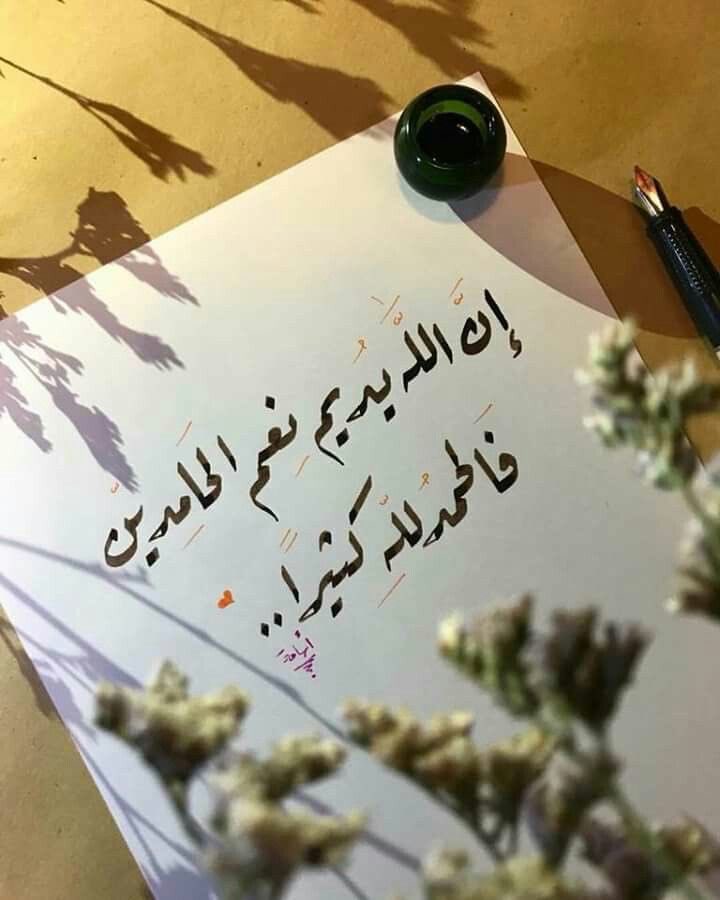 إنَّ اللَّه يُديمِ نعم الحَامِدينّ
فَالحمدُ للّهِ كثيرًا..